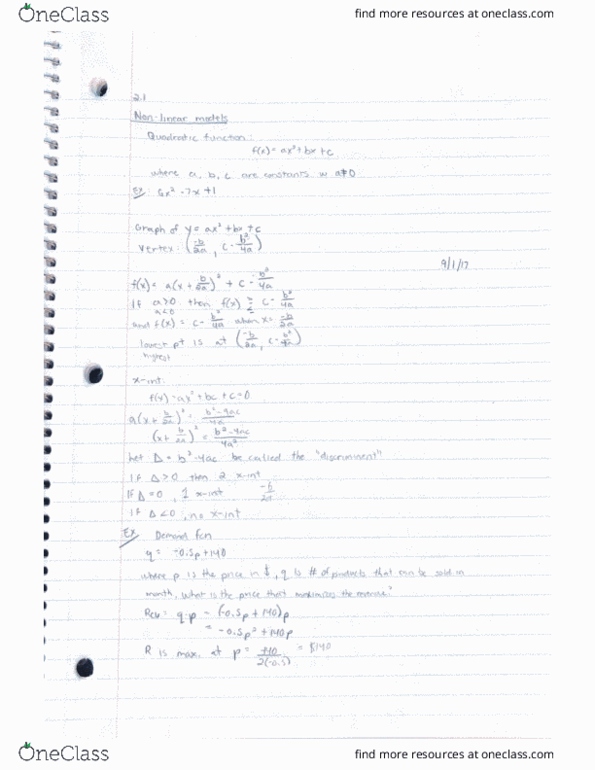 OneClass
find more resources at oneclass.com
2.1
Non-linear models
Quadratic function:
f(x) = ax² + bx + c
where a, b, c are constants w a≠0
Ex: 6x² - 7x + 1
Graph of y = ax² + bx + c
Vertex: (-b/2a, c - b²/4a)
9/1/17
f(x) = a(x + b/2a)² + c - b²/4a
If a>0 then f(x) ≥ c - b²/4a
a<0 ≤
and f(x) = c - b²/4a when x = -b/2a
lowest pt is at (-b/2a, c - b²/4a)
highest
x-int:
f(x) = ax² + bc + c = 0
a(x + b/2a)² = b²-4ac/4a
(x + b/2a)² = b²-4ac/4a²
Let Δ = b²-4ac be called the "discriminent"
If Δ>0 then 2 x-int
If Δ=0, 1 x-int -b/2a
If Δ<0, no x-int
Ex Demand fcn
q = -0.5p + 140
where p is the price in $, q is # of products that can be sold in
month, what is the price that maximizes the revenue?
= q·p = (-0.5p + 140)p
= -0.5p² + 140p
R is max. at p = 140/2(-0.5) = $140
OneClass
find more resources at oneclass.com